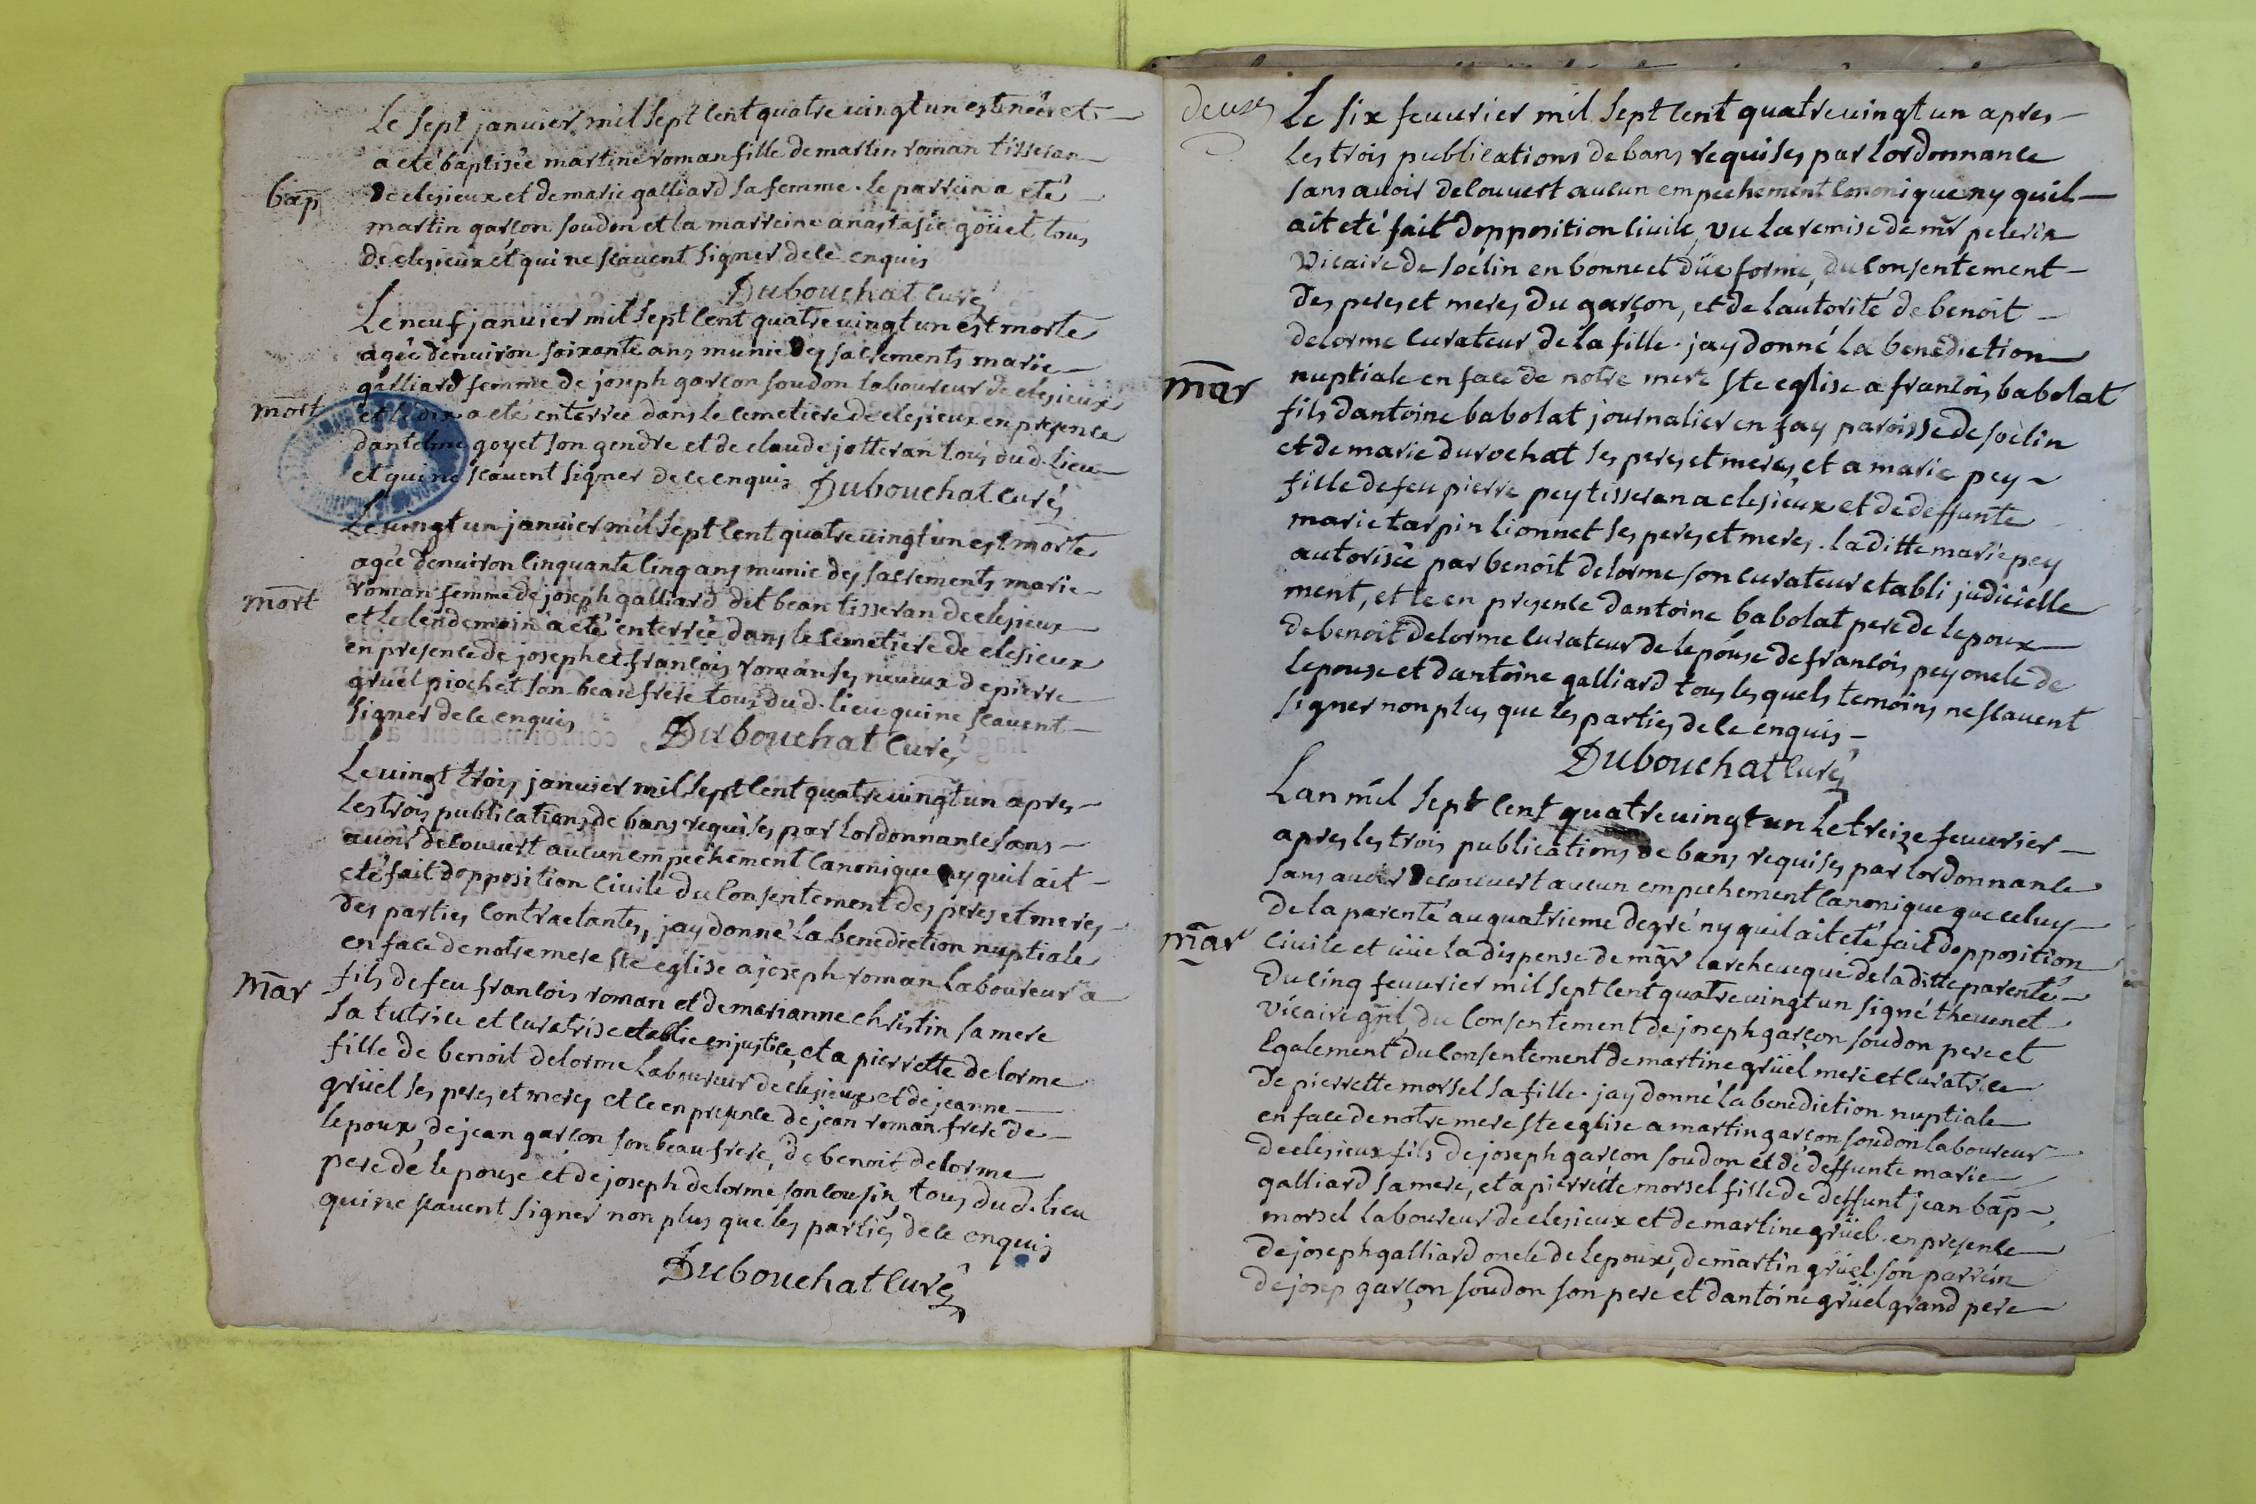 Le sept janvier mil sept cent quatre vingt un est néé et
a eté baptisée martine roman fille de martin roman tisseran
bap
de clesieux et de marie galliard sa femme. le parrein a eté
martin garçon soudon et la marreine anastasie goüet tous
de clesieux et qui ne scavent signer de ce enquis
Dubouchat curé
Le neuf janvier mil sept cent quatre vingt un est morte
agée denviron soixante ans munie des sacrements marie
galliard femme de joseph garcon soudon laboureur de clesieux
mort
et le dix a eté enterrée dans le cemetiere de clesieux en presence
dantelme goyet son gendre et de claude jotteran tous dud. lieu
et qui ne scavent signer de ce enquis Dubouchat curé
Le vingt un janvier mil sept cent quatre vingt un est morte
agée denviron cinquante cinq ans munie des sacrements marie
mort
roman femme de joseph galliard dit bean tisseran de clesieux
et le lendemain a eté enterrée dans le cemetiere de clesieux
en presence de joseph et francois roman ses neveux de pierre
grüel piochet son beau frere tous dud. lieu qui ne scavent
signer de ce enquis Dubouchat curé
Le vingt trois janvier mil sept cent quatre vingt un apres
les trois publications de bans requises par lordonnance sans
avoir decouvert aucun empechement canonique ny quil ait
eté fait dopposition civile du consentement des peres et meres
des parties contractantes, jay donné la benediction nuptiale
en face de notre mere ste eglise a joseph roman laboureur a
mar
fils de feu francois roman et de marianne christin sa mere
sa tutrice et curatrise etablie en justice, et a pierrette delorme
fille de benoit delorme laboureur de clesieux et de jeanne
grüel ses peres et meres et ce en presence de jean roman frere de
lepoux, de jean garcon son beau frere, de benoit delorme
pere de lepouse et de joseph delorme son cousin tous dud. lieu
qui ne scavent signer non plus que les parties de ce enquis
Dubouchat curé
deux
Le six fevvrier mil sept cent quatre vingt un apres
les trois publications de bans requises par lordonnance
sans avoir decouvert aucun empechement canonique ny quil
ait eté fait dopposition civile, vu la remise de mr pelerin
vicaire de soëlin en bonne et düe forme, du consentement
des peres et meres du garçon, et de lautorité de benoit
delorme curateur de la fille. jay donné la benediction
mar
nuptiale en face de notre mere ste eglise a francois babolat
fils dantoine babolat journalier en fay paroisse de soëlin
et de marie durochat ses peres et meres, et a marie pey
fille de feu pierre pey tisseran a clesieux et de deffunte
marie tarpin lionnet ses peres et meres. la ditte marie pey
autorisée par benoit delorme son curateur etabli judicielle
ment, et ce en presence dantoine babolat pere de lepoux
de benoit delorme curateur de lepouse de francois pey oncle de
lepouse et dantoine galliard tous lesquels temoins ne scavent
signer non plus que les parties de ce enquis
Dubouchat curé
Lan mil sept cent quatre vingt un le treize fevvrier
apres les trois publications de bans requises par lordonnance
sans avoir decouvert aucun empechement canonique que celuy
de la parenté au quatrieme degré ny quil ait eté fait dopposition
mar
civile et vüe la dispense de mgr larcheveque de la ditte parenté
du cinq fevvrier mil sept cent quatre vingt un signé thevenet
vicaire gnl, du consentement de joseph garçon soudon pere et
egalement du consentement de martine grüel mere et curatrice
de pierrette morsel sa fille. jay donné la benediction nuptiale
en face de notre mere ste eglise a martin garcon soudon laboureur
de clesieux fils de joseph garcon soudon et de deffunte marie
galliard sa mere, et a pierrette morsel fille de deffunt jean bap
morsel laboureur de clesieux et de martine grüel. en presence
de joseph galliard oncle de lepoux, de martin grüel son parrein
de josep garçon soudon son pere et dantoine grüel grand pere